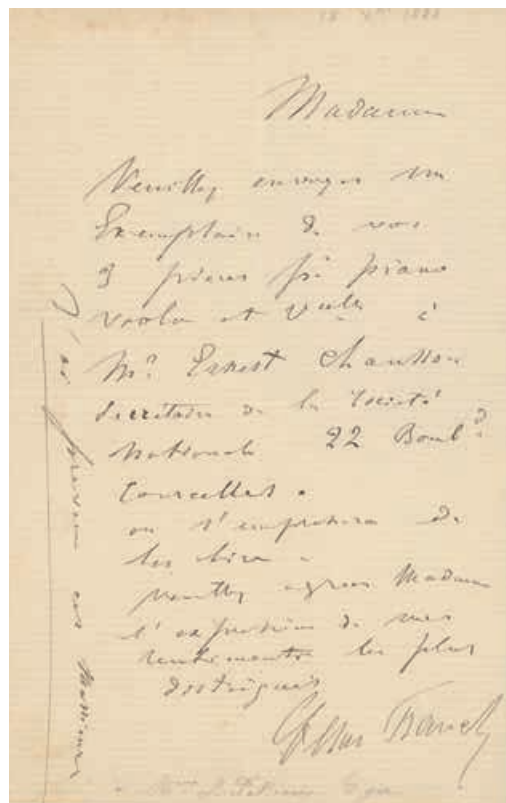 Madame
Veuillez envoyer un
Exemplaire de vos
3 pièces pr piano
viola et à
Mr Ernest Chausson
Secrétaire de la Société
Nationale 22 Boul.d
Courcelles.
on s'empressera de
les lire.
Veuillez agréer Madame
l'expression de mes
sentiments les plus
distingués
César Franck
J'ai prévenu ces Messieurs